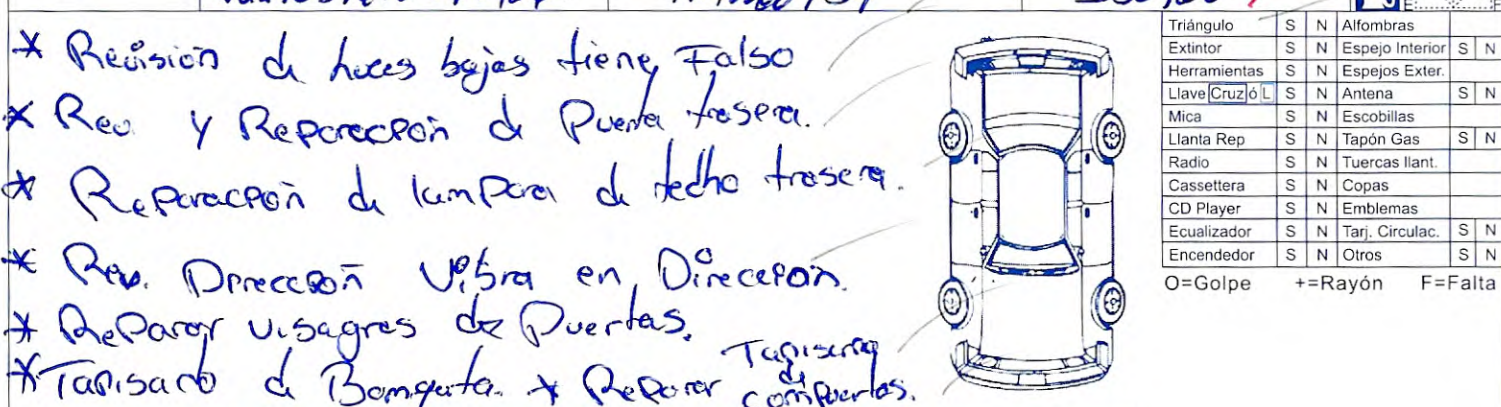 * Reúision de luces bajas tiene Falso
* Rev. y Reparacpon de Puerta trasera.
* Reparacpon de lampara de techo trasera.
* Rev. Direccion Vibra en Direccion.
* Reparar visagres de Puertas.
* Tapisado de Banqueta. * Reparar Tapiseria de compuertas.
Triángulo S N Alfombras
Extintor S N Espejo Interior S N
Herramientas S N Espejos Exter.
Llave Cruz ó L S N Antena S N
Mica S N Escobillas
Llanta Rep S N Tapón Gas S N
Radio S N Tuercas llant.
Cassettera S N Copas
CD Player S N Emblemas
Ecualizador S N Tarj. Circulac. S N
Encendedor S N Otros S N
O=Golpe +=Rayón F=Falta